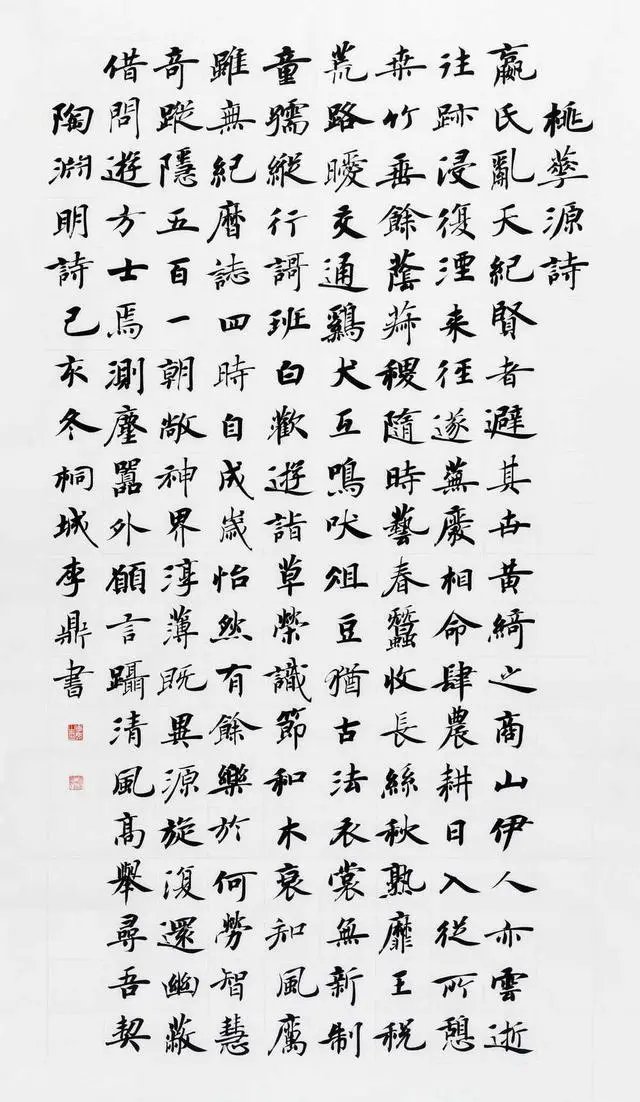 桃華源詩
嬴氏亂天紀賢者避其世黃綺之商山伊人亦雲逝
往跡浸復湮来径遂蕪廢相命肆農耕日入從所憩
桒竹垂餘蔭菽稷隨時藝春蠶收長絲秋熟靡王稅
荒路曖交通鷄犬互鳴吠俎豆猶古法衣裳無新制
童孺縱行謌班白歡遊詣草榮識節和木衰知風厲
雖無紀曆誌四時自成歲怡然有餘樂於何勞智慧
奇蹤隱五百一朝敞神界淳薄既異源旋復還幽蔽
借問遊方士焉測塵囂外願言躡清風高舉尋吾契
陶渊明詩己亥冬桐城李鼎書